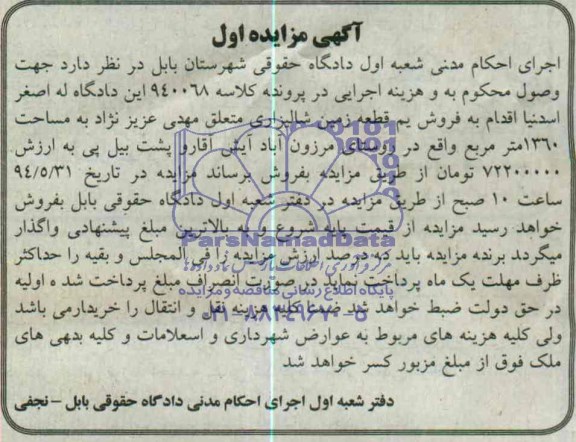 آگهی مزایده اول
اجرای احکام مدنی شعبه اول دادگاه حقوقی شهرستان بابل در نظر دارد جهت
وصول محکوم به و هزینه اجرایی در پرونده کلاسه ۹۴۰۰۶۸ این دادگاه له اصغر
اسدنیا اقدام به فروش یم قطعه زمین شالیزاری متعلق مهدی عزیز نژاد به مساحت
۱۳۶۰متر مربع واقع در روستای مرزون آباد آیش آقارو پشت بیل پی به ارزش
۷۲۲۰۰۰۰۰ تومان از طریق مزایده بفروش برساند مزایده در تاریخ ۹۴/۵/۳۱
ساعت ۱۰ صبح از طریق مزایده در دفتر شعبه اول دادگاه حقوقی بابل بفروش
خواهد رسید مزایده از قیمت پایه شروع و به بالاترین مبلغ پیشنهادی واگذار
میگردد برنده مزایده باید ده درصد ارزش مزایده را فی المجلس و بقیه را حداکثر
ظرف مهلت یک ماه پرداخت نماید در صورت انصراف مبلغ پرداخت شد ه اولیه
در حق دولت ضبط خواهد شد ضمنا کلیه هزینه نقل و انتقال را خریدارمی باشد
ولی کلیه هزینه های مربوط به عوارض شهرداری و اسعلامات و کلیه بدهی های
ملک فوق از مبلغ مزبور کسر خواهد شد
دفتر شعبه اول اجرای احکام مدنی دادگاه حقوقی بابل – نجفی
ParsNamadData
پایگاه اطلاع رسانی مناقصه و مزایده